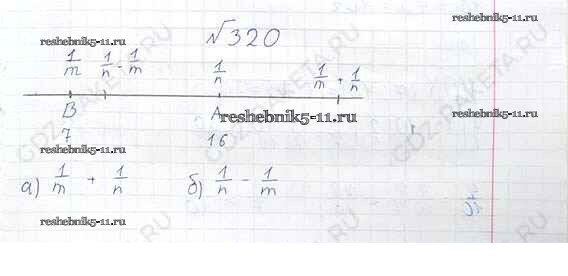 №320
reshebnik5-11.ru reshebnik5-11.ru
1/m 1/n - 1/m 1/n 1/m + 1/n
B A
reshebnik5-11.ru reshebnik5-11.ru
7 16
reshebnik5-11.ru
а) 1/m + 1/n б) 1/n - 1/m
reshebnik5-11.ru reshebnik5-11.ru
GDZ-RAKETA.RU